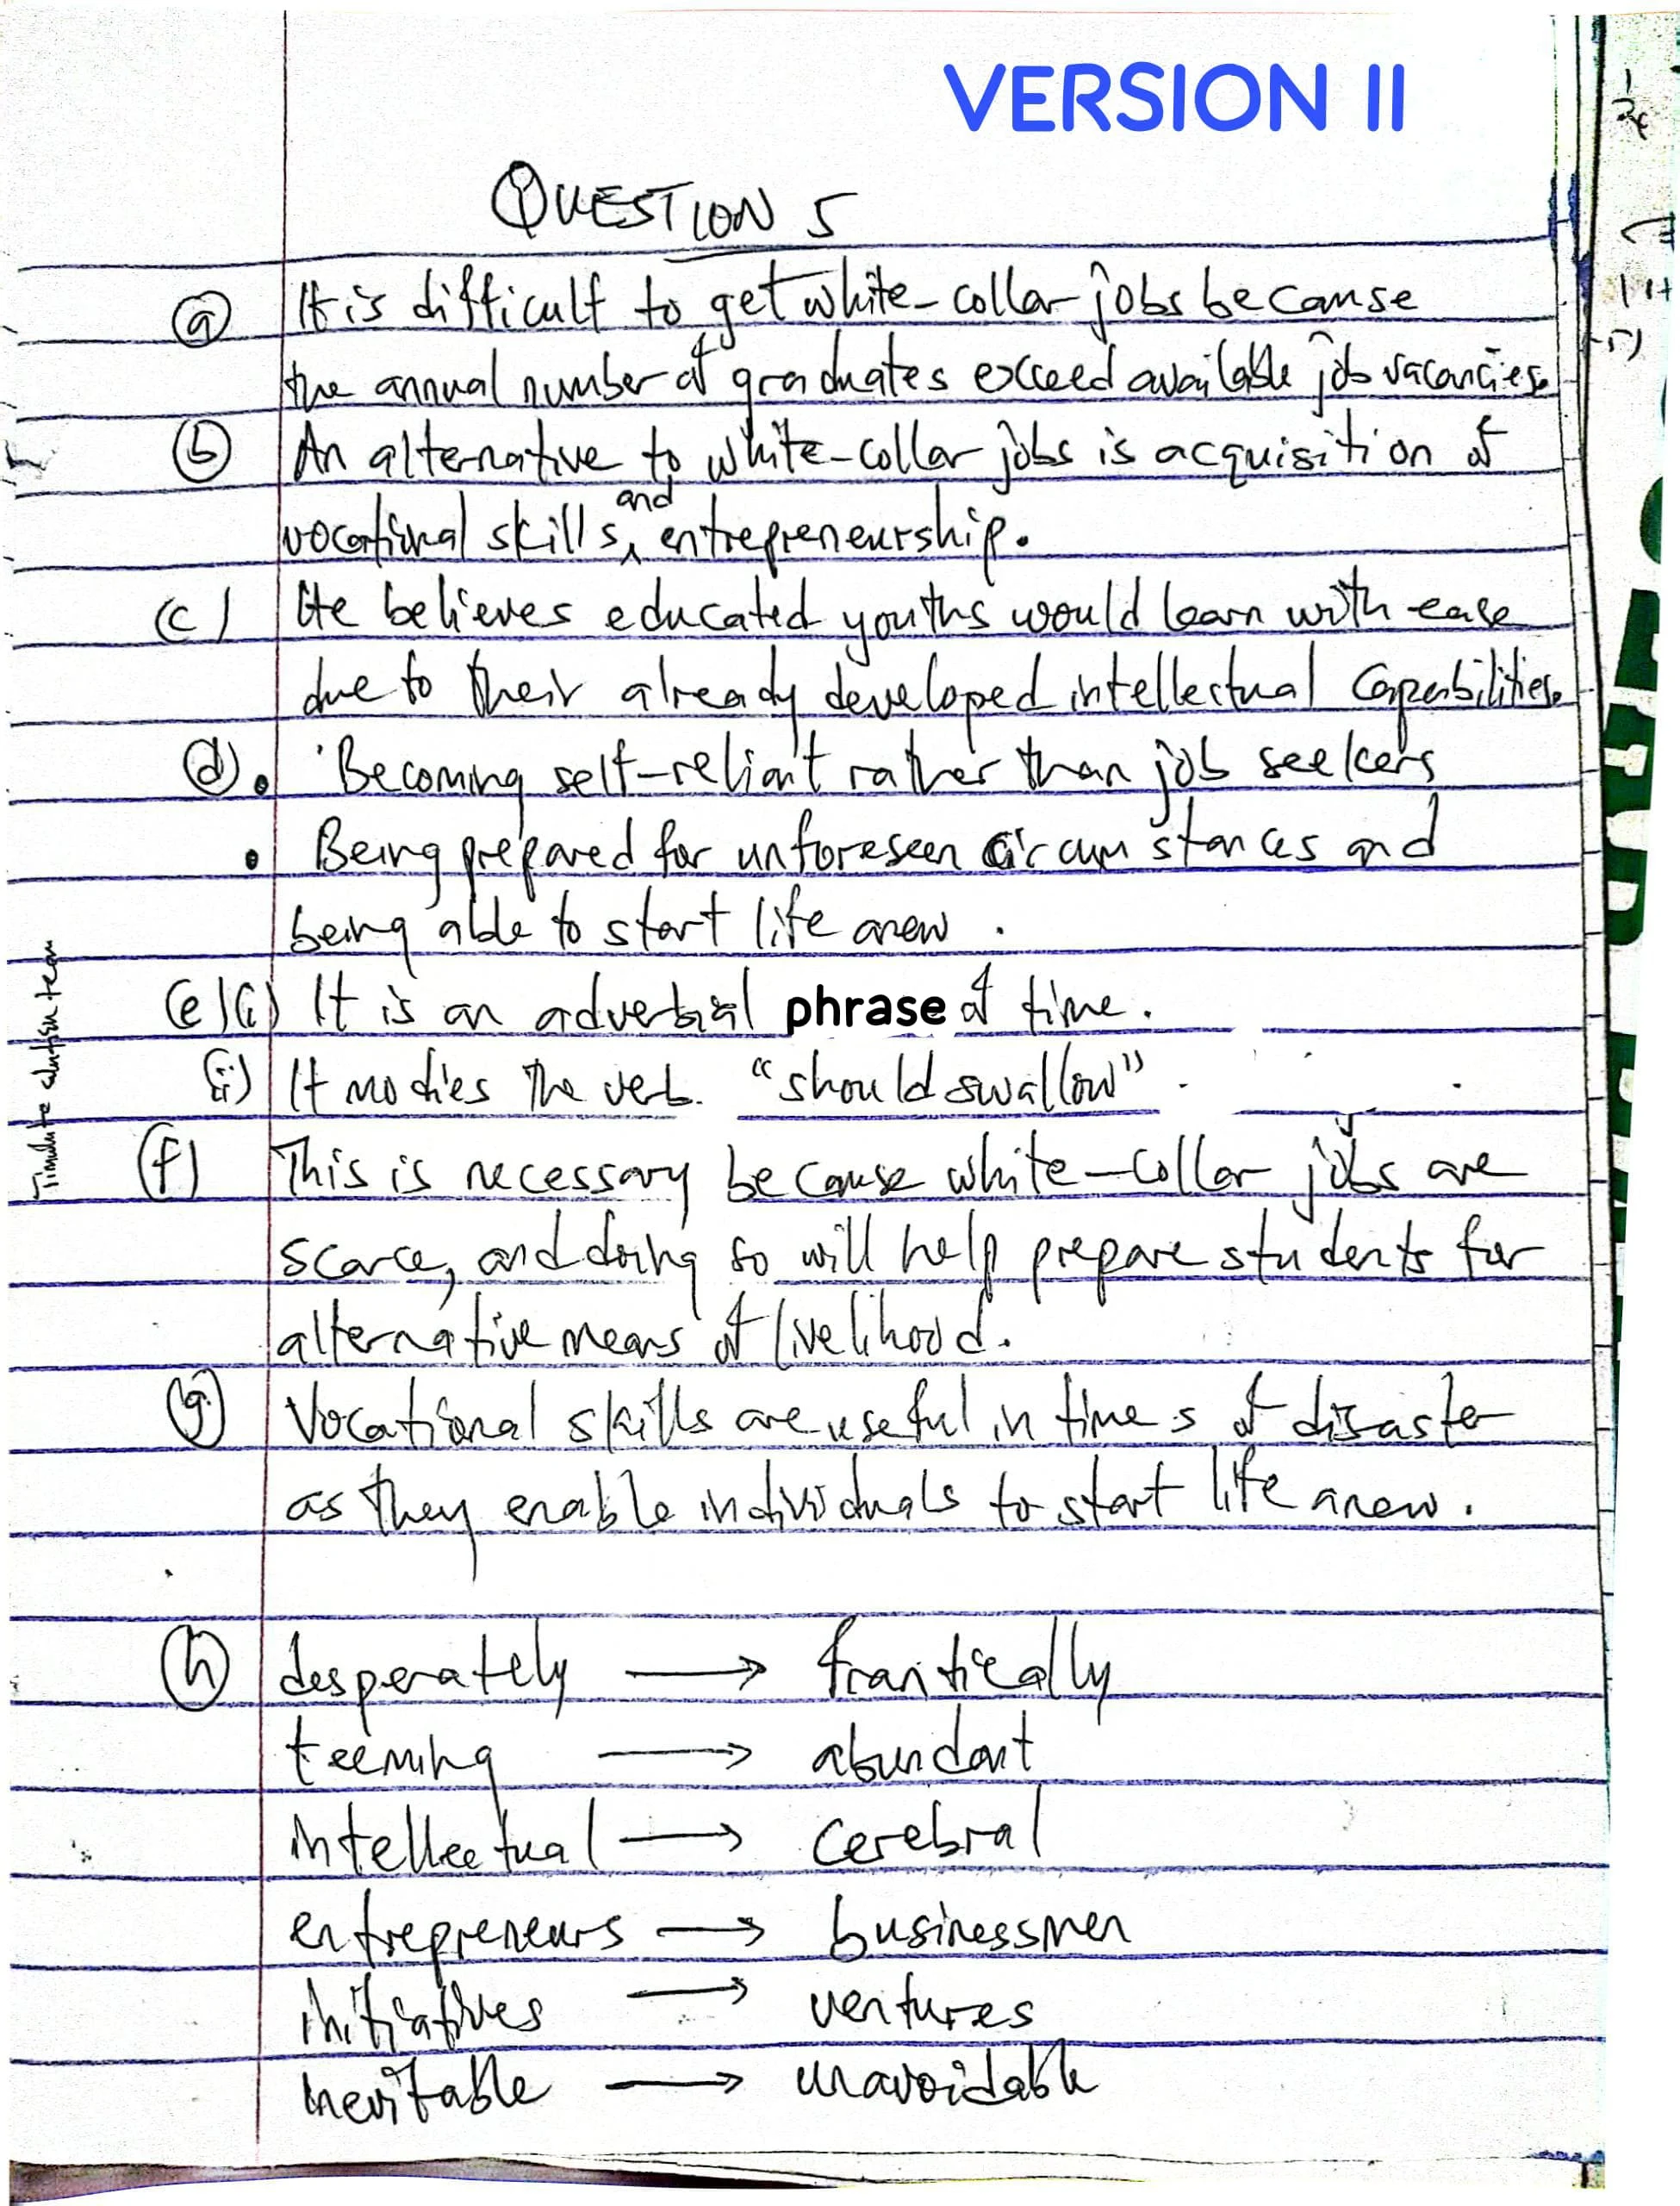 VERSION II
QUESTION 5
(a) It is difficult to get white-collar jobs because
the annual number of graduates exceed available job vacancies.
(b) An alternative to white-collar jobs is acquisition of
vocational skills and entrepreneurship.
(c) He believes educated youths would learn with ease
due to their already developed intellectual capabilities.
(d) • Becoming self-reliant rather than job seekers
• Being prepared for unforeseen circumstances and
being able to start life anew.
(e)(i) It is an adverbial phrase of time.
(ii) It modies the verb. "should swallow".
(f) This is necessary because white-collar jobs are
scarce, and doing so will help prepare students for
alternative means of livelihood.
(g) Vocational skills are useful in times of disaster
as they enable individuals to start life anew.
(h) desperately → frantically
teeming → abundant
intellectual → cerebral
entrepreneurs → businessmen
initiatives → ventures
inevitable → unavoidable
team